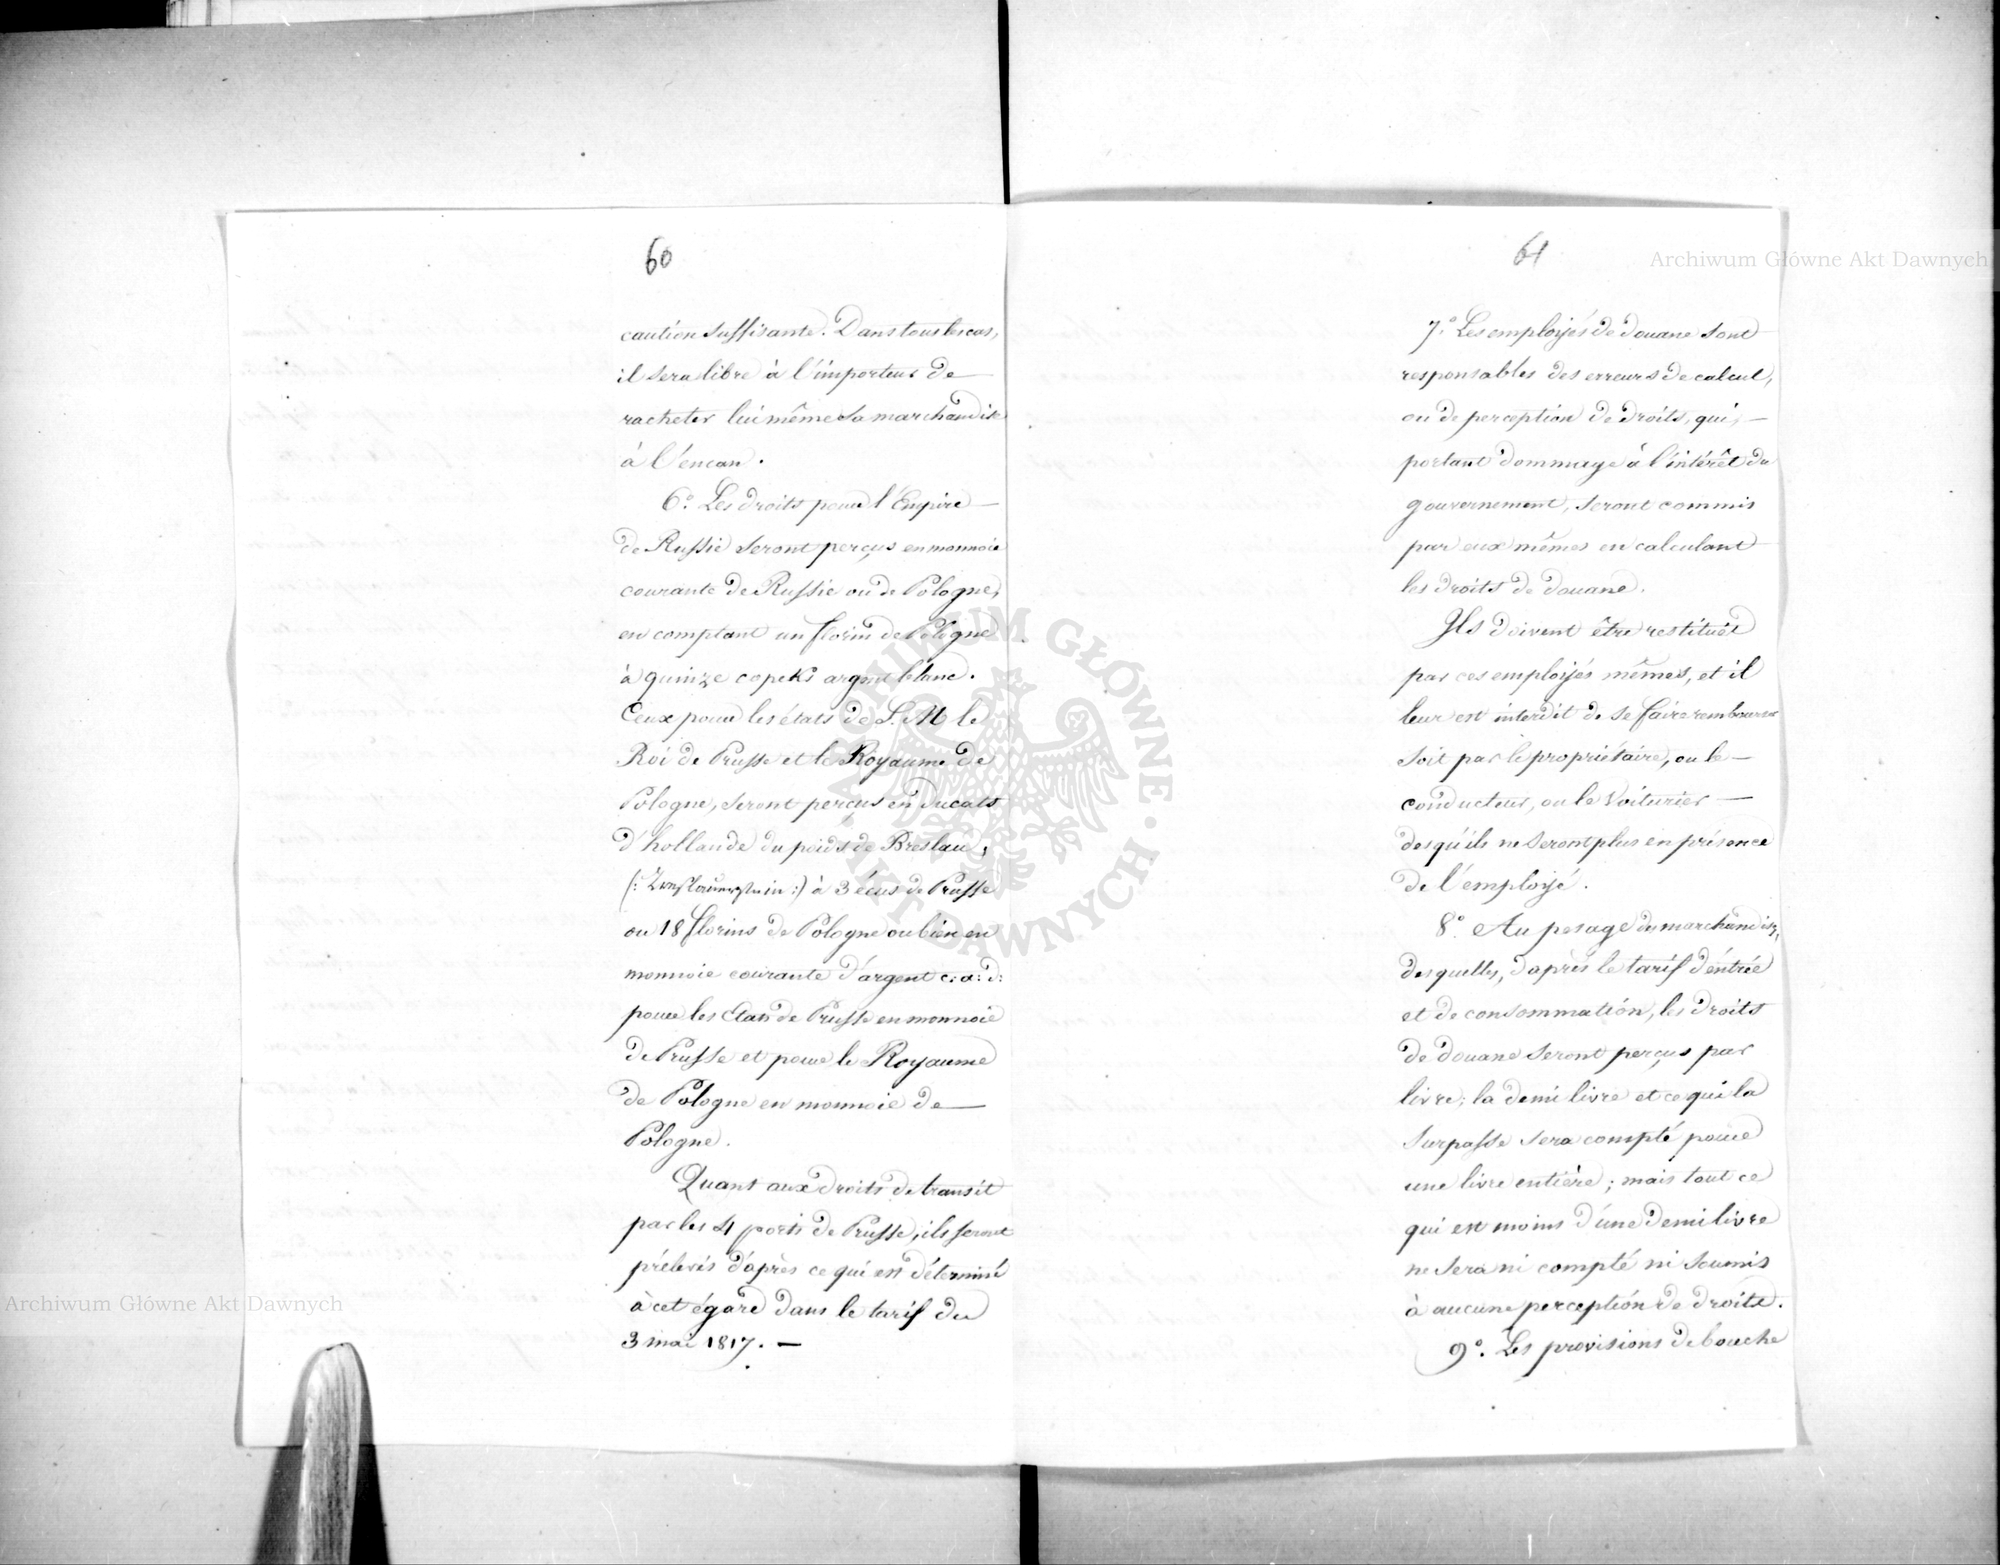 60
caution suffisante. Dans tous les cas,
il sera libre à l'importeur de —
racheter lui même sa marchandise
à l'encan.
6.º Les droits pour l'Empire —
de Russie seront perçus en monnoie
courante de Russie ou de Pologne,
en comptant un florin de Pologne
à quinze copeks argent blanc.
Ceux pour les états de S. M. le
Roi de Prusse et le Royaume de
Pologne, seront perçus en ducats
d'hollande du poids de Breslau,
à 3 écus de Prusse
ou 18 florins de Pologne ou bien en
monnoie courante d'argent c: a: d:
pour les Etats de Prusse en monnoie
de Prusse et pour le Royaume
de Pologne en monnoie de —
Pologne.
Quant aux droits de transit
par les 4 ports de Prusse, ils seront
prélevés d'après ce qui est déterminé
à cet égard dans le tarif du
3 mai 1817. —
61
7.º Les employés de douane sont
responsables des erreurs de calcul,
ou de perception de droits, qui, —
portant dommage à l'intérêt du
gouvernement, seront commis
par eux mêmes en calculant
les droits de douane.
Ils doivent être restitués
par ces employés mêmes, et il
leur est interdit de se faire rembourser
soit par le propriétaire, ou le —
conducteur, ou le Voiturier —
desqu'ils ne seront plus en présence
de l'employé.
8.º Au pesage du marchandises,
desquelles, d'après le tarif d'entrée
et de consommation, les droits
de douane seront perçus par
livre; la demi livre et ce qui la
surpasse sera compté pour
une livre entière; mais tout ce
qui est moins d'une demi livre
ne sera ni compté ni soumis
à aucune perception de droits.
9.º Les provisions de bouche
Archiwum Główne Akt Dawnych
Archiwum Główne Akt Dawnych
ARCHIWUM GŁÓWNE · AKT DAWNYCH ·